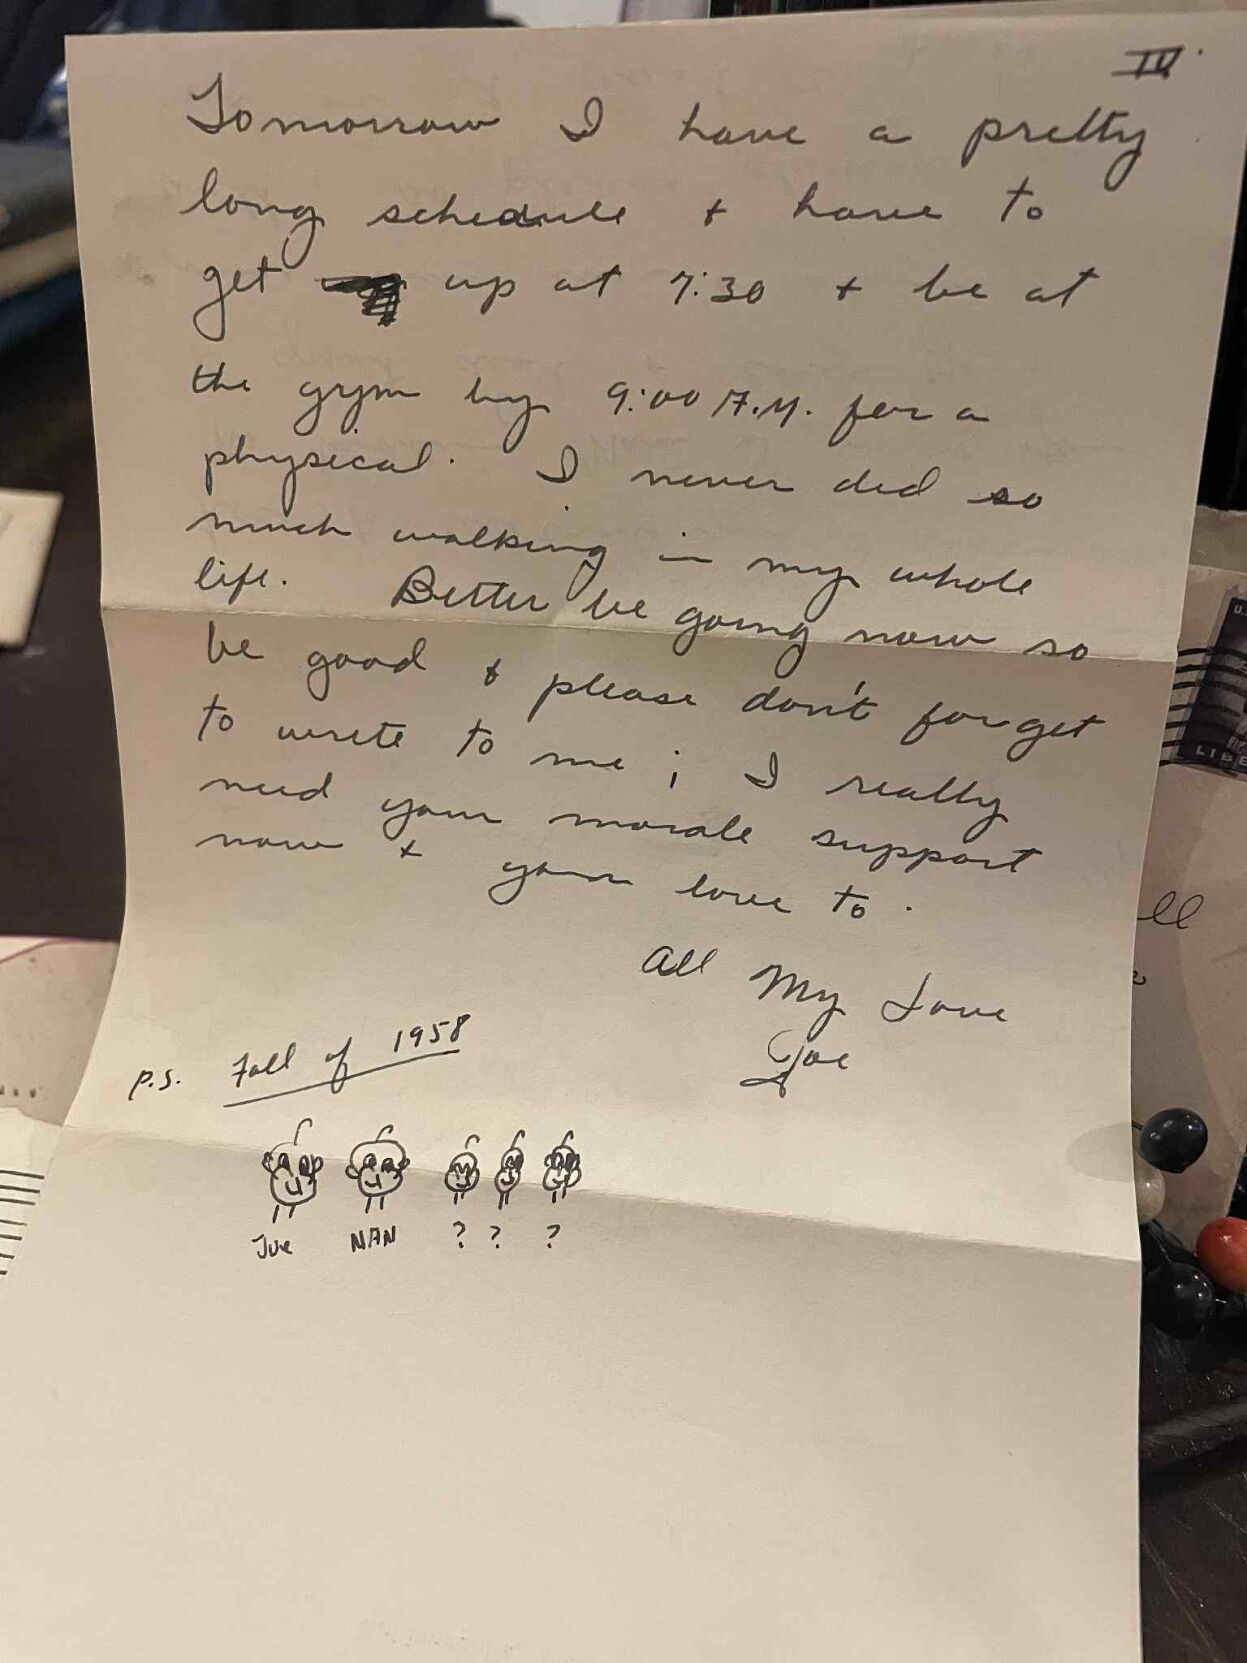 IV.
Tomorrow I have a pretty
long schedule + have to
get up at 7:30 + be at
the gym by 9:00 A.M. for a
physical. I never did so
much walking in my whole
life. Better be going now so
be good & please don't forget
to write to me; I really
need your morale support
now + your love to.
All My Love
Joe
P.S. Fall of 1958
Joe NAN ? ? ?
LIBE
ell